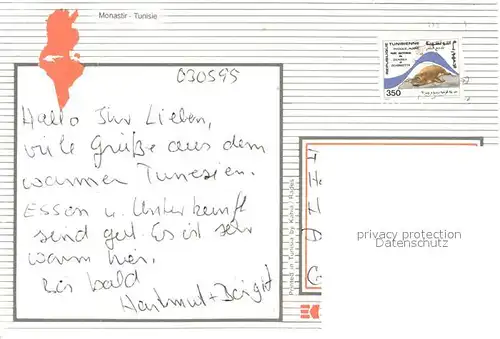 Monastir - Tunisie
030595
REPUBLIQUE TUNISIENNE
350
Hallo Ihr Lieben,
viele Grüße aus dem
warmen Tunesien.
Essen u. Unterkunft
sind gut. Es ist sehr
warm hier.
Bis bald
Hartmut + Birgit
Printed in Tunisia by Kahia, Rades
privacy protection
Datenschutz